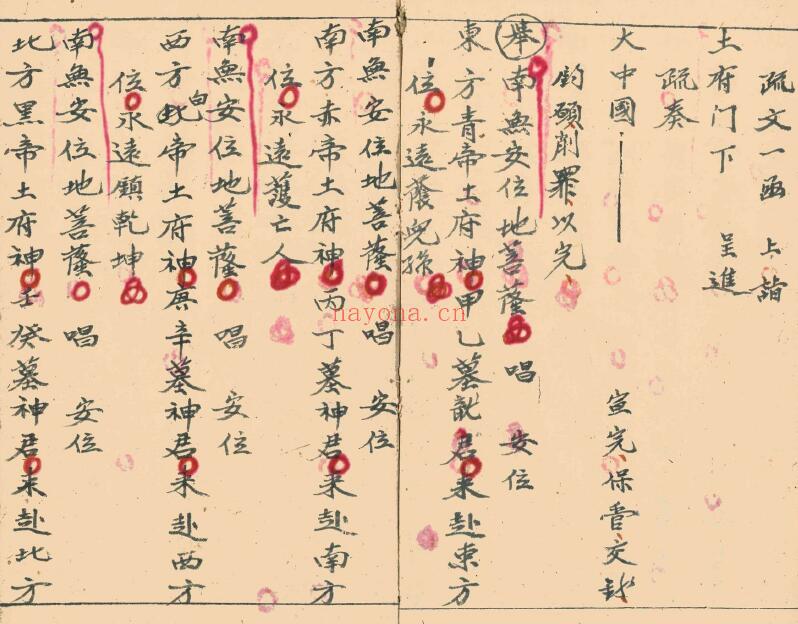 疏文一函 上詣
土府门下 呈進
疏奏
大中國 宣完保管交
鈞頭削罪以完
舉 南無安位地菩薩 唱 安位
東方青帝土府神甲乙墓龍君来赴東方
位永遠蔭兒孫
南無安位地菩薩 唱 安位
南方赤帝土府神丙丁墓神君来赴南方
位永遠護亡人
南無安位地菩薩 唱 安位
西方白帝土府神庚辛墓神君来赴西方
位永遠鎮乾坤
南無安位地菩薩 唱 安位
北方黑帝土府神壬癸墓神君来赴北方
hayona.cn